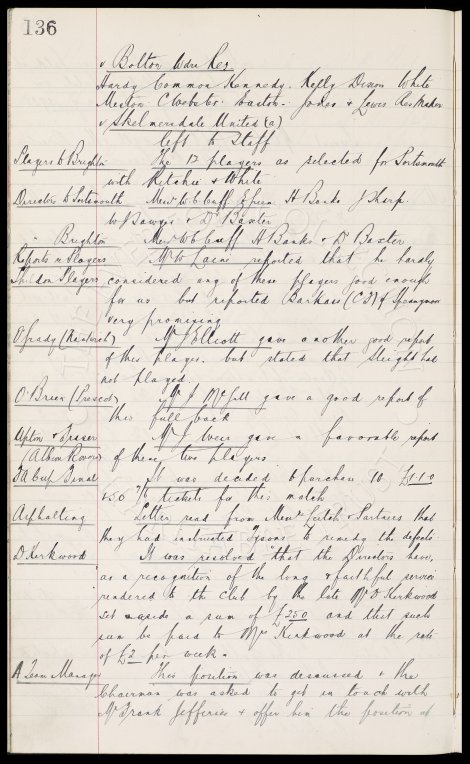 136
v Bolton Wdrs Res.
Hardy Common Kennedy. Kelly Dixon White
Meston C Webster. Easton. Jones & Lewis Res Maker
v Skelmersdale United (a)
left to Staff
Players to Brighton The 12 players as selected for Portsmouth
with Ritchie & White
Directors to Portsmouth Messrs W C Cuff Green H Banks J Sharp.
W Sawyer & Dr Baxter
" Brighton Messrs W C Cuff H Banks & Dr Baxter
Reports re Players Mr W Laine reported that he hardly
Shildon Players considered any of these players good enough
for us but reported Barkass (C.F) &
very promising
O'Grady (Nantwich) Mr J Elliott gave another good report
of this player. but stated that Sleight had
not played.
O'Brien (Prescot) Mr J McGill gave a good report of
this full back
Upton & Fraser Mr J Weir gave a favourable report
(Albion Rovers) of these two players
F A Cup Final It was decided to purchase 10 £1-1-0
& 50 tickets for this match
Asphalting Letter read from Messrs Leitch & Partners that
they had instructed Tysons to remedy the defects.
D. Kirkwood It was resolved "that the Directors have,
as a recognition of the long & faithful services
rendered to the Club by the late Mr D Kirkwood
set aside a sum of £250 and that such
sum be paid to Mrs Kirkwood at the rate
of £2 per week."
A Team Manager This position was discussed & the
Chairman was asked to get in touch with
Mr Frank Jefferies & offer him the position at